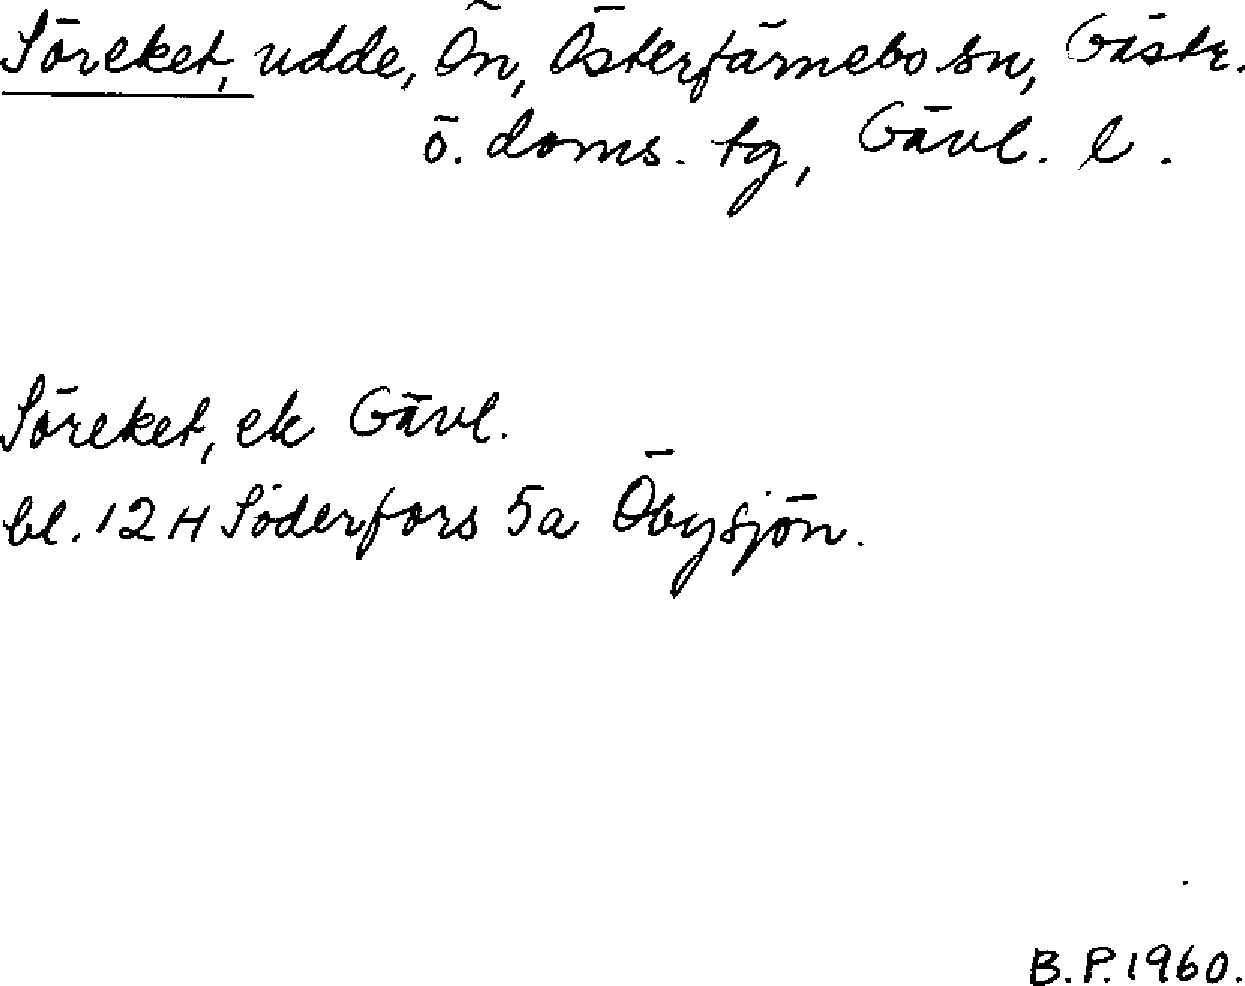 Söreket, udde, Ön, Österfärnebo sn, Gästr.
ö. doms. tg, Gävl. l.
Söreket, ek Gävl.
bl. 12 H Söderfors 5a Öbysjön.
B.P. 1960.